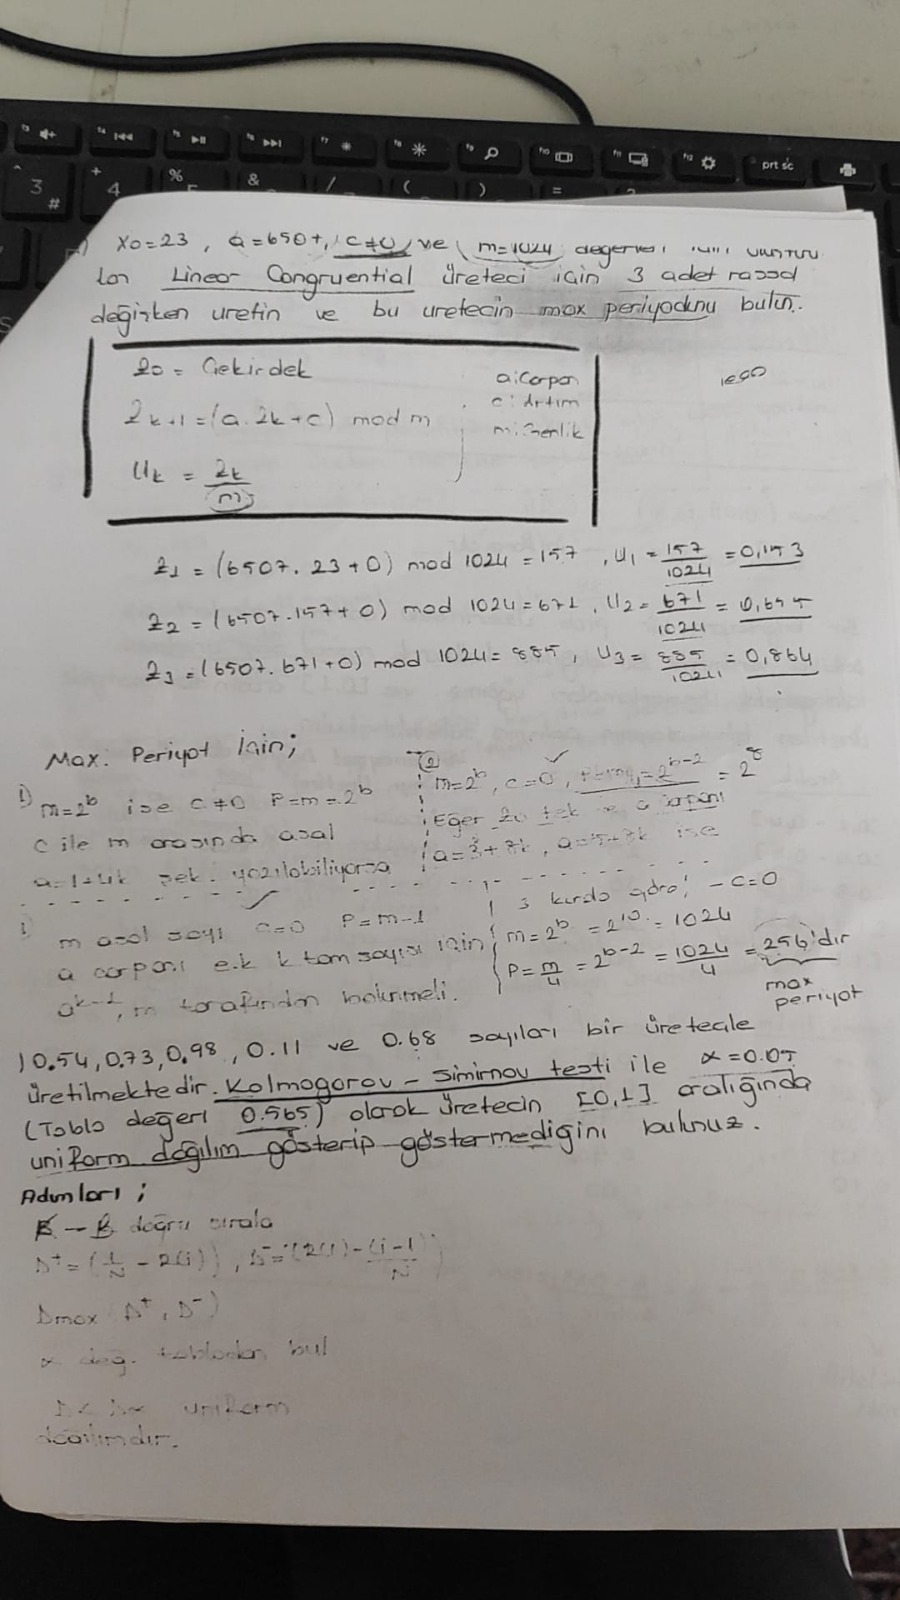 X0=23, a=6507, c≠0, ve m=1024
lan Linear Congruential üreteci için 3 adet rassal
değişken üretin ve bu üretecin max periyodunu bulun.
Z0 = Çekirdek
Zk+1=(a.Zk+c) mod m
Uk = Zk/m
a:Çarpan
c: Artım
m:
Z1 = (6507.23+0) mod 1024=157, U1=157/1024=0,153
Z2 = (6507.157+0) mod 1024=671, U2=671/1024=0,655
Z3=(6507.671+0) mod 1024=885, U3=885/1024=0,864
Max. Periyot İçin;
1) m=2^b ise c≠0 P=m=2^b
c ile m arasında asal
a=1+4k şek. yazılabiliyorsa
2
m=2^b, c=0, =2^b-2 = 2^8
Eğer Z0 tek ve a çarpanı
a=3+8k, a=5+8k ise
m asal sayı c=0 P=m-1
a çarpanı e.k k tam sayısı için
a^k-1, m tarafından bölünmeli.
göre; -c=0
m=2^b=2^10=1024
P=m/4=2^b-2=1024/4=256'dır
max
periyot
) 0.54, 0.73, 0.98, 0.11 ve 0.68 sayıları bir üreteçle
üretilmektedir. Kolmogorov - Simirnov testi ile α=0.05
(Tablo değeri 0.565) olarak üretecin [0,1] aralığında
uniform dağılım gösterip göstermediğini bulunuz.
Adımları;
doğru sırala
D+=(i/N - Z(i)), D-=(Z(i)-(i-1)/N)
Dmax (D+, D-)
α değ. tablodan bul
D< Dα uniform
dağılımdır.